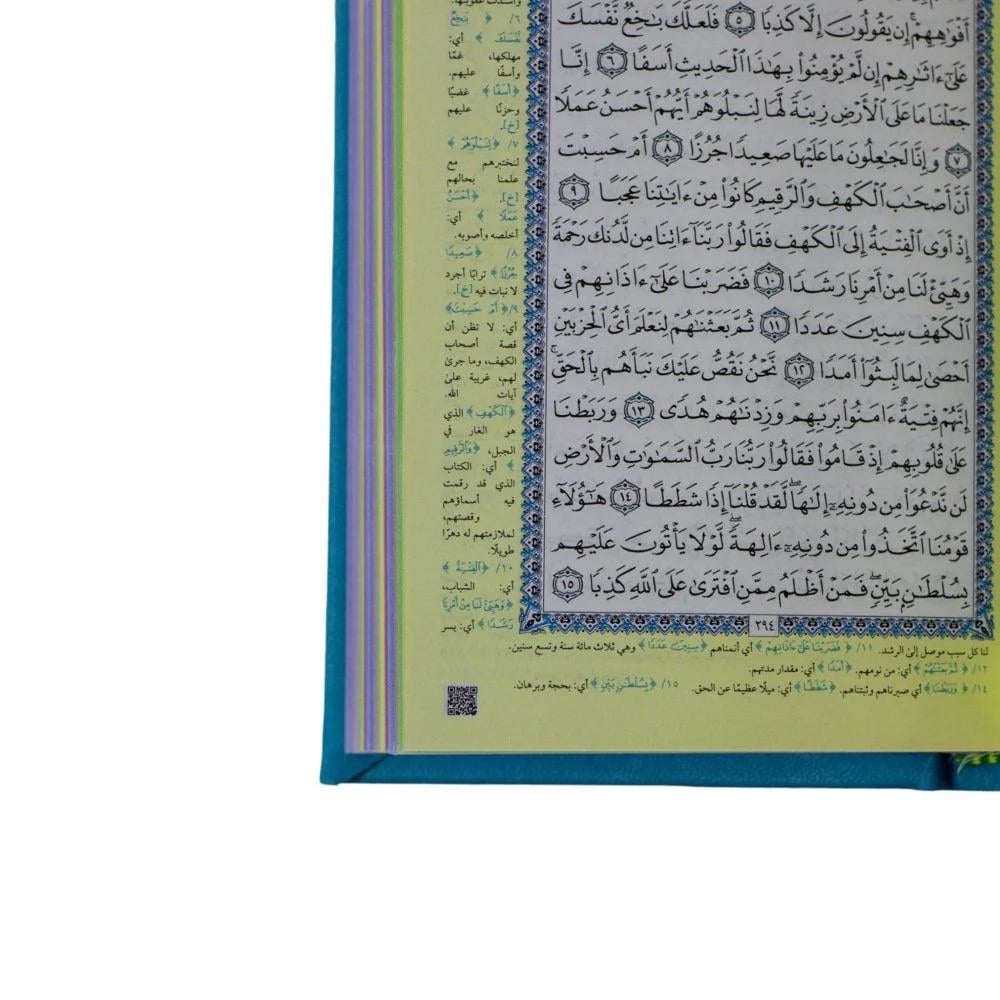 أَفْوَٰهِهِمْ ۚ إِن يَقُولُونَ إِلَّا كَذِبًا ٥ فَلَعَلَّكَ بَٰخِعٌ نَّفْسَكَ
عَلَىٰٓ ءَاثَٰرِهِمْ إِن لَّمْ يُؤْمِنُوا۟ بِهَٰذَا ٱلْحَدِيثِ أَسَفًا ٦ إِنَّا
جَعَلْنَا مَا عَلَى ٱلْأَرْضِ زِينَةً لَّهَا لِنَبْلُوَهُمْ أَيُّهُمْ أَحْسَنُ عَمَلًا
٧ وَإِنَّا لَجَٰعِلُونَ مَا عَلَيْهَا صَعِيدًا جُرُزًا ٨ أَمْ حَسِبْتَ
أَنَّ أَصْحَٰبَ ٱلْكَهْفِ وَٱلرَّقِيمِ كَانُوا۟ مِنْ ءَايَٰتِنَا عَجَبًا ٩
إِذْ أَوَى ٱلْفِتْيَةُ إِلَى ٱلْكَهْفِ فَقَالُوا۟ رَبَّنَآ ءَاتِنَا مِن لَّدُنكَ رَحْمَةً
وَهَيِّئْ لَنَا مِنْ أَمْرِنَا رَشَدًا ١٠ فَضَرَبْنَا عَلَىٰٓ ءَاذَانِهِمْ فِى
ٱلْكَهْفِ سِنِينَ عَدَدًا ١١ ثُمَّ بَعَثْنَٰهُمْ لِنَعْلَمَ أَىُّ ٱلْحِزْبَيْنِ
أَحْصَىٰ لِمَا لَبِثُوٓا۟ أَمَدًا ١٢ نَّحْنُ نَقُصُّ عَلَيْكَ نَبَأَهُم بِٱلْحَقِّ ۚ
إِنَّهُمْ فِتْيَةٌ ءَامَنُوا۟ بِرَبِّهِمْ وَزِدْنَٰهُمْ هُدًى ١٣ وَرَبَطْنَا
عَلَىٰ قُلُوبِهِمْ إِذْ قَامُوا۟ فَقَالُوا۟ رَبُّنَا رَبُّ ٱلسَّمَٰوَٰتِ وَٱلْأَرْضِ
لَن نَّدْعُوَا۟ مِن دُونِهِۦٓ إِلَٰهًا ۖ لَّقَدْ قُلْنَآ إِذًا شَطَطًا ١٤ هَٰٓؤُلَآءِ
قَوْمُنَا ٱتَّخَذُوا۟ مِن دُونِهِۦٓ ءَالِهَةً ۖ لَّوْلَا يَأْتُونَ عَلَيْهِم
بِسُلْطَٰنٍۭ بَيِّنٍ ۖ فَمَنْ أَظْلَمُ مِمَّنِ ٱفْتَرَىٰ عَلَى ٱللَّهِ كَذِبًا ١٥
٢٩٤
٦/ ﴿ بَٰخِعٌ
نَّفْسَكَ ﴾ أي:
مهلكها، غمًا
وأسفًا عليهم.
﴿أَسَفًا﴾ غضبًا
وحزنًا عليهم
[خ].
٧/ ﴿لِنَبْلُوَهُمْ ﴾
لنختبرهم مع
علمنا بحالهم
[خ]. ﴿أَحْسَنُ
عَمَلًا ﴾ أي:
أخلصه وأصوبه.
٨/ ﴿صَعِيدًا
جُرُزًا﴾ ترابًا أجرد
لا نبات فيه [خ].
٩/ ﴿ أَمْ حَسِبْتَ﴾
أي: لا تظن أن
قصة أصحاب
الكهف، وما جرى
لهم، غريبة على
آيات الله.
﴿ٱلْكَهْفِ﴾ الذي
هو الغار في
الجبل، ﴿وَٱلرَّقِيمِ
﴾ أي: الكتاب
الذي قد رقمت
فيه أسماؤهم
وقصتهم،
لملازمتهم له دهرًا
طويلًا.
١٠/ ﴿ ٱلْفِتْيَةُ ﴾
أي: الشباب،
﴿وَهَيِّئْ لَنَا مِنْ أَمْرِنَا
رَشَدًا ﴾ أي: يسر
لنا كل سبب موصل إلى الرشد. ١١/ ﴿ فَضَرَبْنَا عَلَىٰٓ ءَاذَانِهِمْ ﴾ أي أنمناهم ﴿سِنِينَ عَدَدًا﴾ وهي ثلاث مائة سنة وتسع سنين.
١٢/ ﴿ ثُمَّ بَعَثْنَٰهُمْ ﴾ أي: من نومهم. ﴿أَمَدًا﴾ أي: مقدار مدتهم.
١٤/ ﴿ وَرَبَطْنَا﴾ أي صبرناهم وثبتناهم. ﴿شَطَطًا﴾ أي: ميلًا عظيمًا عن الحق. ١٥/ ﴿بِسُلْطَٰنٍۭ بَيِّنٍ﴾ أي: بحجة وبرهان.